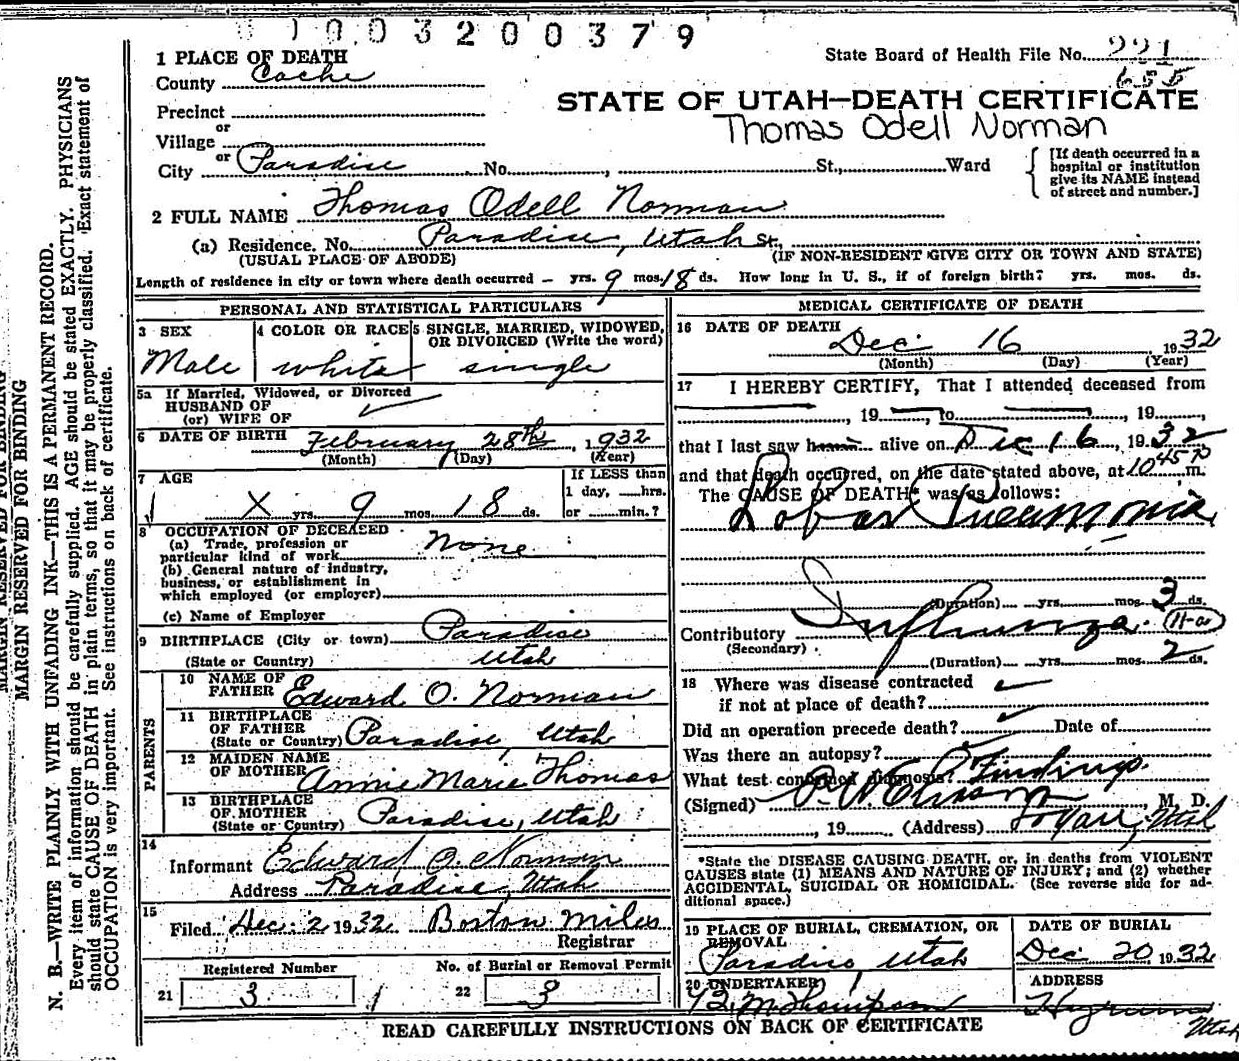 1003200379
State Board of Health File No. 221
655
1 PLACE OF DEATH
County Cache
STATE OF UTAH—DEATH CERTIFICATE
Thomas Odell Norman
Precinct
or
Village
or
City Paradise No. , St., Ward
[If death occurred in a
hospital or institution
give its NAME instead
of street and number.]
2 FULL NAME Thomas Odell Norman
(a) Residence. No. Paradise, Utah St.
(USUAL PLACE OF ABODE) (IF NON-RESIDENT GIVE CITY OR TOWN AND STATE)
Length of residence in city or town where death occurred — yrs. 9 mos. 18 ds. How long in U. S., if of foreign birth? yrs. mos. ds.
PERSONAL AND STATISTICAL PARTICULARS
3 SEX 4 COLOR OR RACE 5 SINGLE, MARRIED, WIDOWED,
OR DIVORCED (Write the word)
Male white single
5a If Married, Widowed, or Divorced
HUSBAND OF
(or) WIFE OF
6 DATE OF BIRTH February 28th, 1932
(Month) (Day) (Year)
7 AGE If LESS than
1 day, hrs.
X yrs. 9 mos. 18 ds. or min.?
8 OCCUPATION OF DECEASED
(a) Trade, profession or
particular kind of work None
(b) General nature of industry,
business, or establishment in
which employed (or employer)
(c) Name of Employer
9 BIRTHPLACE (City or town) Paradise
(State or Country) Utah
PARENTS
10 NAME OF
FATHER Edward O. Norman
11 BIRTHPLACE
OF FATHER
(State or Country) Paradise, Utah
12 MAIDEN NAME
OF MOTHER Annie Marie Thomas
13 BIRTHPLACE
OF MOTHER
(State or Country) Paradise, Utah
14
Informant Edward O. Norman
Address Paradise, Utah
15
Filed Dec. 2 1932 Boston Miles
Registrar
Registered Number No. of Burial or Removal Permit
21 3 22 3
MEDICAL CERTIFICATE OF DEATH
16 DATE OF DEATH
Dec 16 1932
(Month) (Day) (Year)
17 I HEREBY CERTIFY, That I attended deceased from
, 19 to , 19 ,
that I last saw h alive on Dec 16, 1932
and that death occurred, on the date stated above, at 1045 P m.
The CAUSE OF DEATH* was as follows:
Lobar Pneumonia
(Duration) yrs. mos. 3 ds.
Contributory Influenza (11-a)
(Secondary)
(Duration) yrs. mos. 2 ds.
18 Where was disease contracted
if not at place of death?
Did an operation precede death? Date of
Was there an autopsy?
What test confirmed diagnosis? Findings
(Signed) , M. D.
, 19 (Address) Logan, Utah
*State the DISEASE CAUSING DEATH, or, in deaths from VIOLENT
CAUSES state (1) MEANS AND NATURE OF INJURY; and (2) whether
ACCIDENTAL, SUICIDAL OR HOMICIDAL. (See reverse side for ad-
ditional space.)
19 PLACE OF BURIAL, CREMATION, OR
REMOVAL
Paradise, Utah
DATE OF BURIAL
Dec 20, 1932
20 UNDERTAKER
Thompson
ADDRESS
Hyrum
Utah
READ CAREFULLY INSTRUCTIONS ON BACK OF CERTIFICATE
MARGIN RESERVED FOR BINDING
MARGIN RESERVED FOR BINDING
N. B.—WRITE PLAINLY WITH UNFADING INK—THIS IS A PERMANENT RECORD.
Every item of information should be carefully supplied. AGE should be stated EXACTLY. PHYSICIANS
should state CAUSE OF DEATH in plain terms, so that it may be properly classified. Exact statement of
OCCUPATION is very important. See instructions on back of certificate.